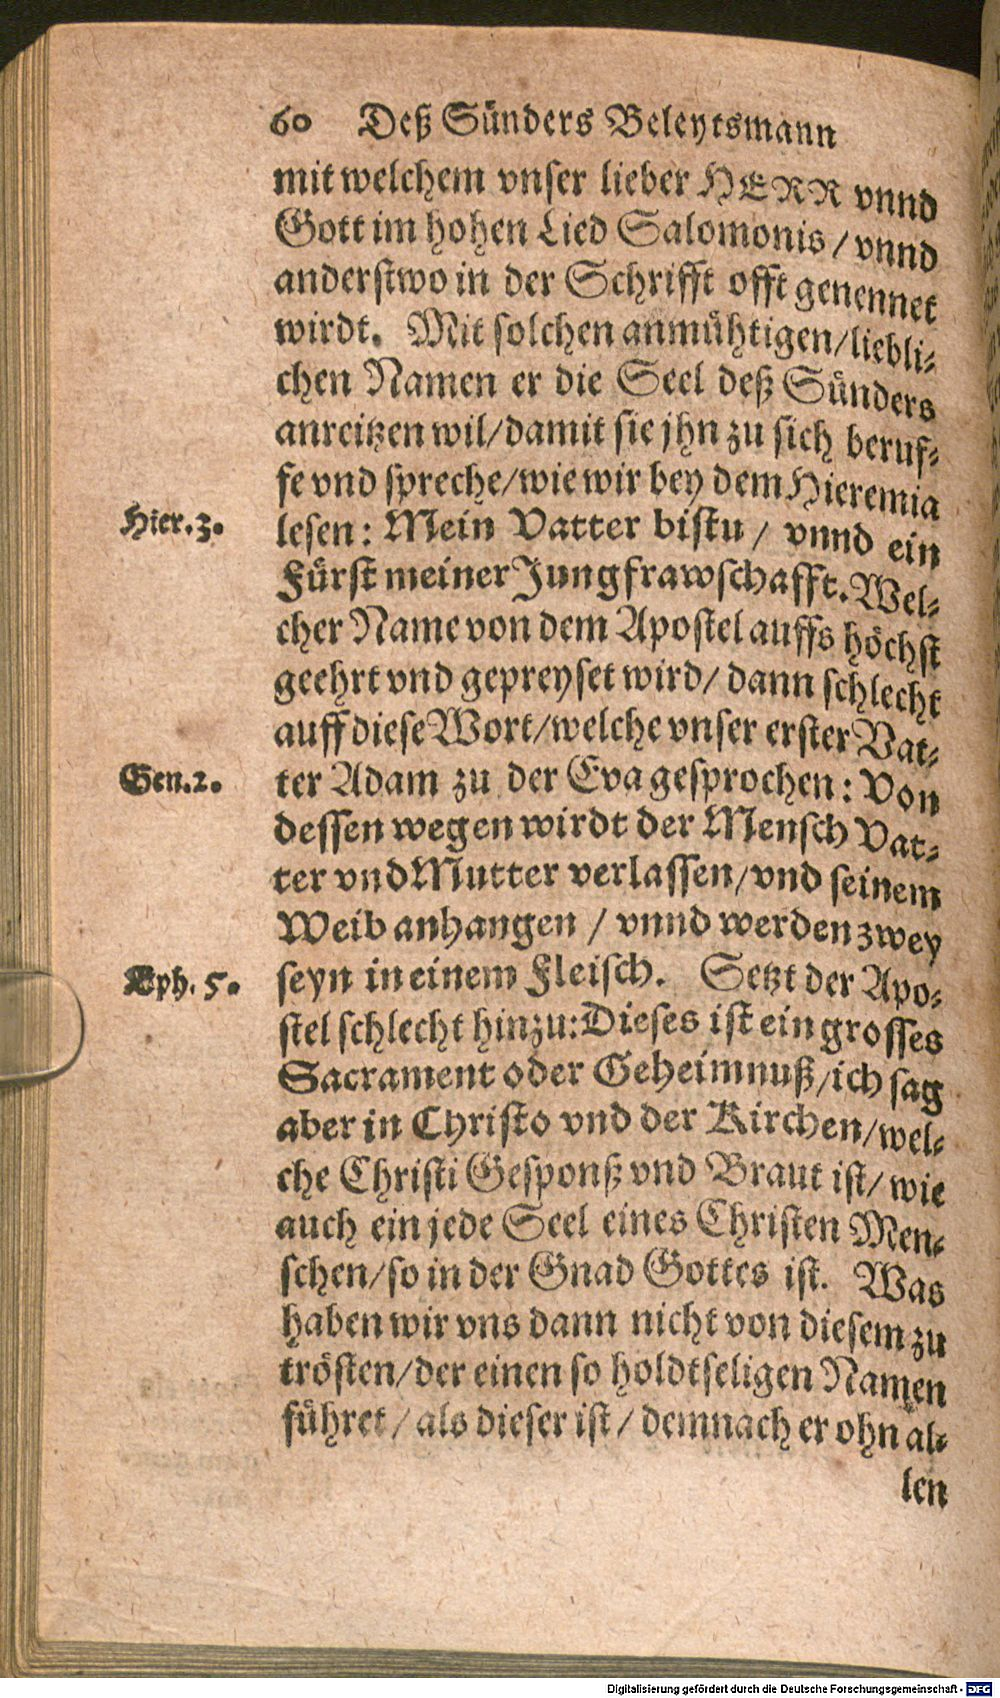 60 Deß Sünders Beleytsmann
mit welchem vnser lieber HERR vnnd
Gott im hohen Lied Salomonis / vnnd
anderstwo in der Schrifft offt genennet
wirdt. Mit solchen anmühtigen/liebli-
chen Namen er die Seel deß Sünders
anreitzen wil/damit sie jhn zu sich beruf-
fe vnd spreche/wie wir bey dem Hieremia
Hier.3. lesen: Mein Vatter bistu / vnnd ein
Fürst meiner Jungfrawschafft. Wel-
cher Name von dem Apostel auffs höchst
geehrt vnd gepreyset wird/ dann schlecht
auff diese Wort/welche vnser erster Vat-
Gen.2. ter Adam zu der Eva gesprochen: Von
dessen wegen wirdt der Mensch Vat-
ter vnd Mutter verlassen/vnd seinem
Weib anhangen / vnnd werden zwey
Eph. 5. seyn in einem Fleisch. Setzt der Apo-
stel schlecht hinzu: Dieses ist ein grosses
Sacrament oder Geheimnuß/ich sag
aber in Christo vnd der Kirchen/wel-
che Christi Gesponß vnd Braut ist/ wie
auch ein jede Seel eines Christen Men-
schen/so in der Gnad Gottes ist. Was
haben wir vns dann nicht von diesem zu
trösten/der einen so holdtseligen Namen
führet / als dieser ist / demnach er ohn al-
len
Digitalisierung gefördert durch die Deutsche Forschungsgemeinschaft - DFG